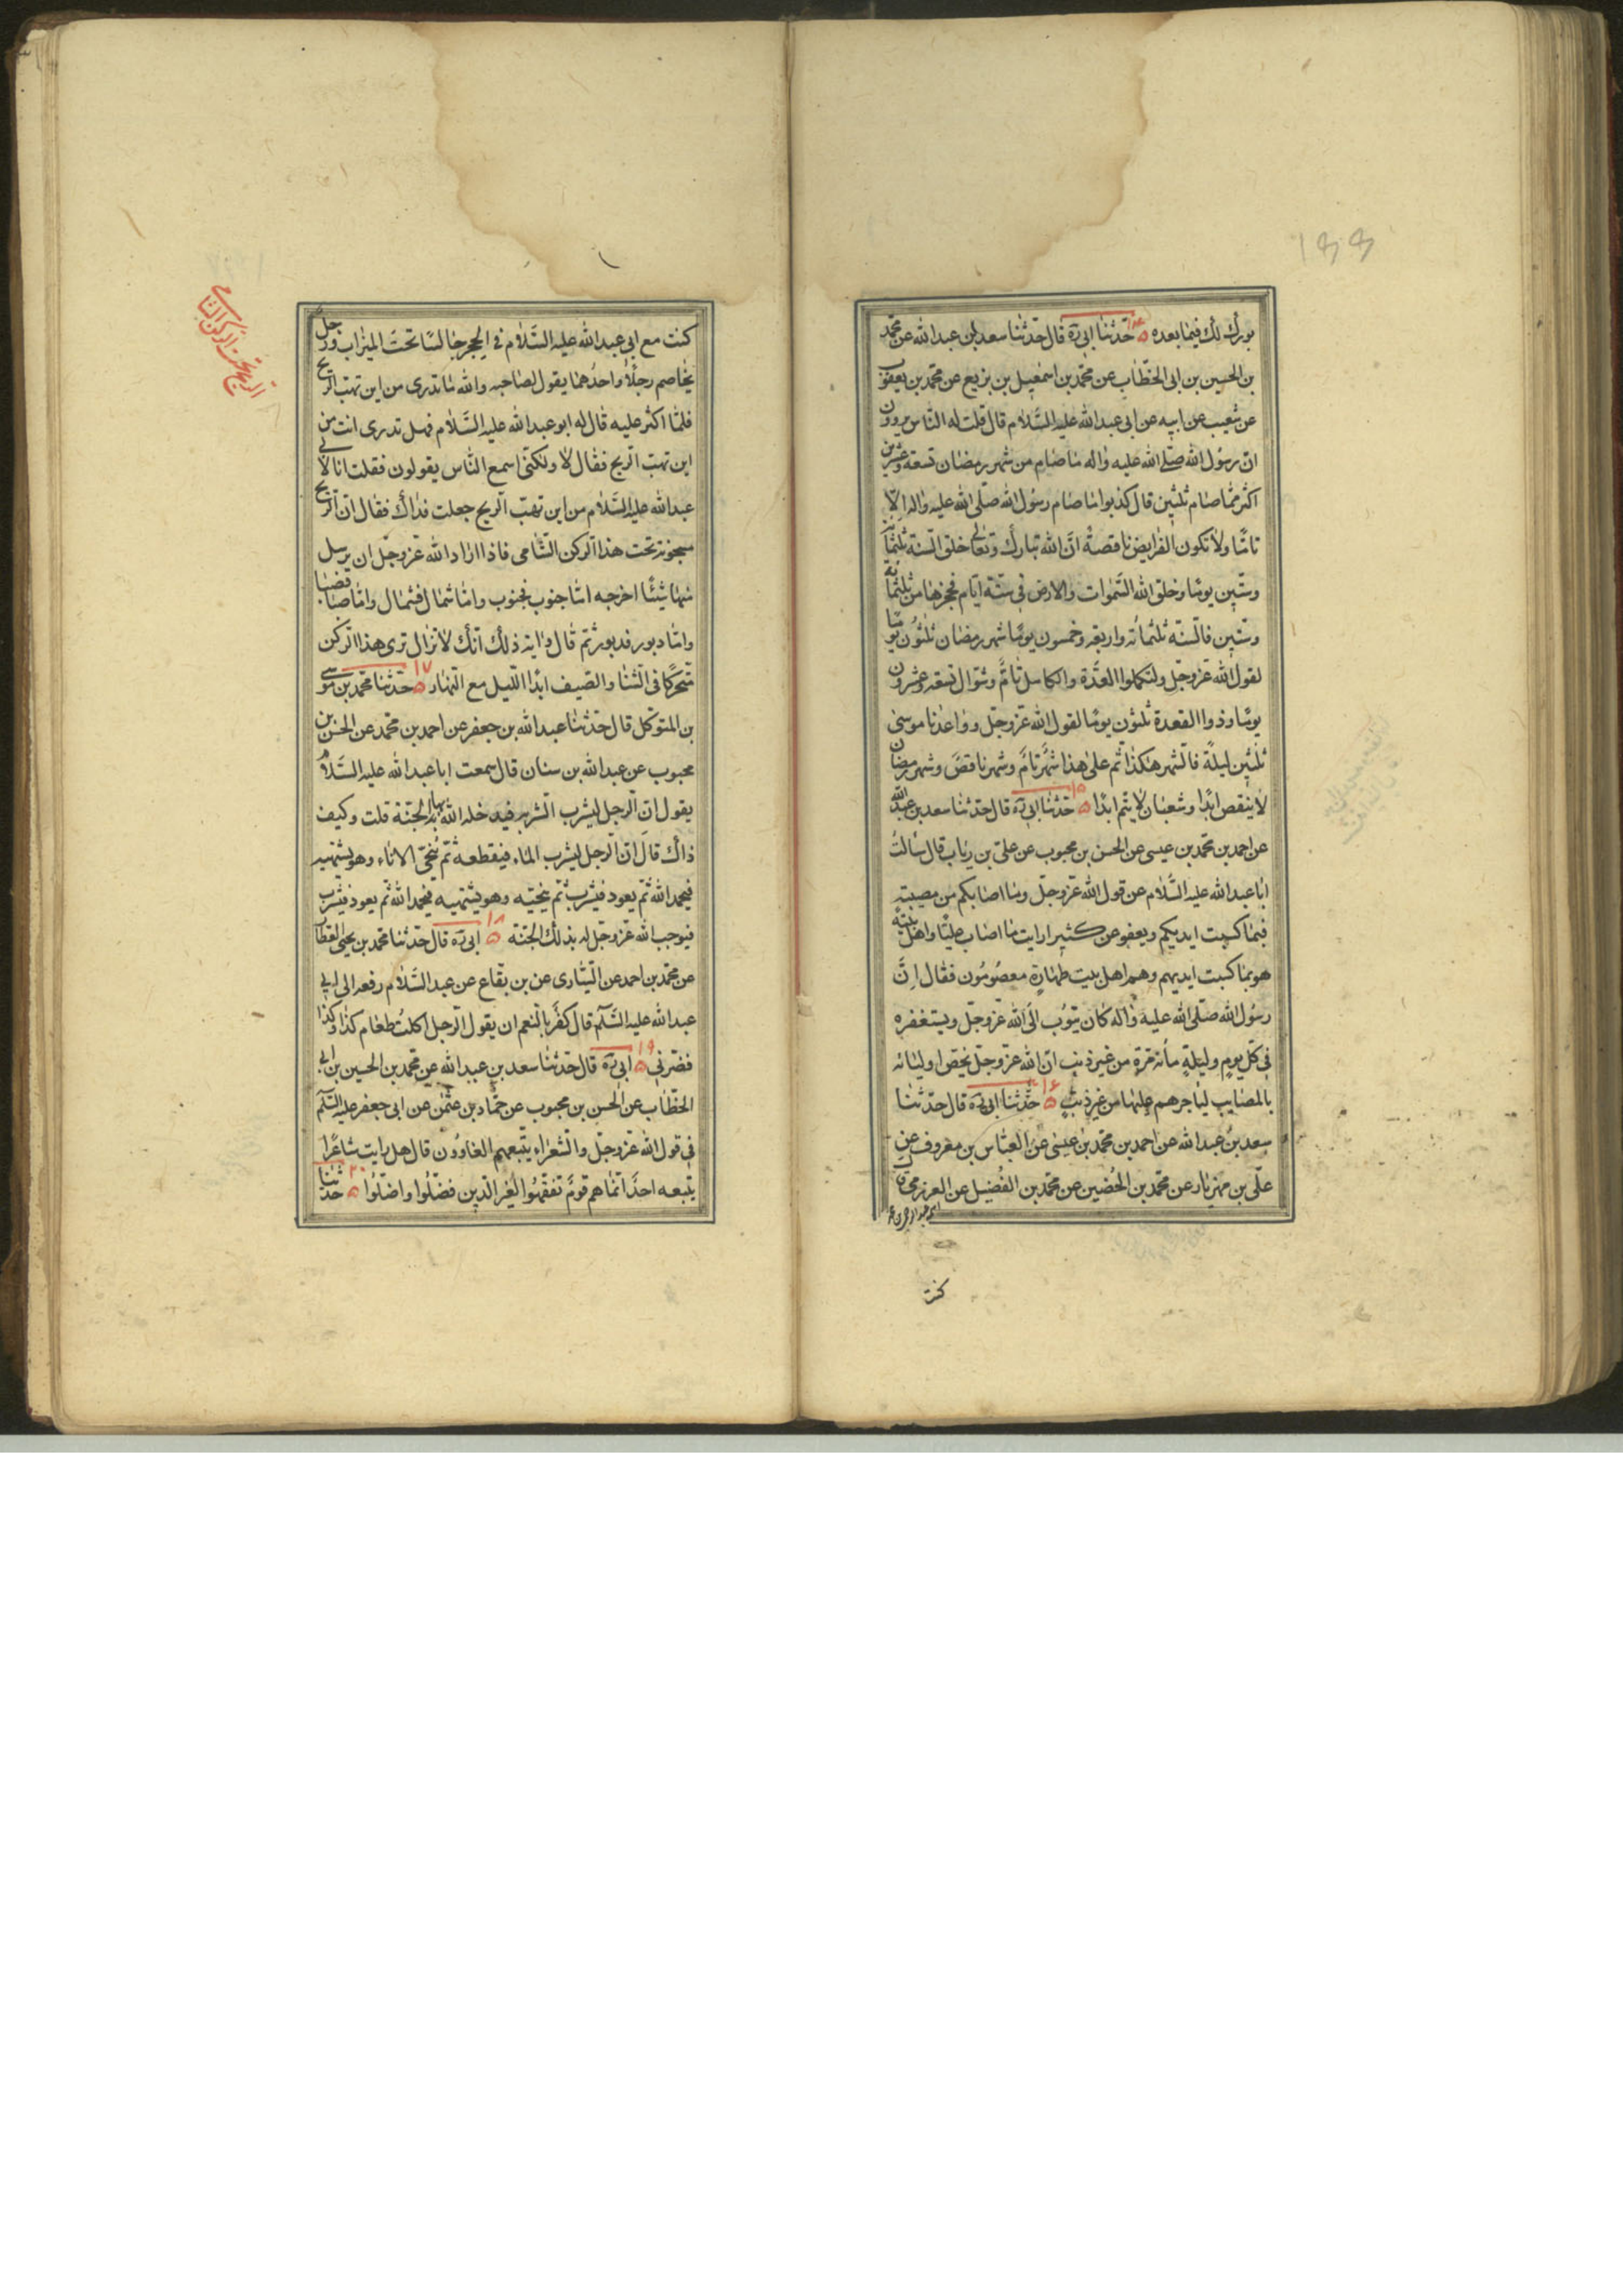 بورك لك فيما بعده ۱۴ حدثنا ابى ره قال حدثنا سعد بن عبدالله عن محمد
بن الحسين بن ابى الخطاب عن محمد بن اسمعيل بن بزيع عن محمد بن يعقوب
عن شعيب عن ابيه عن ابى عبدالله عليه السلام قال قلت له الناس يروون
ان رسول الله صلى الله عليه واله ما صام من شهر رمضان تسعة وعشرين
اكثر مما صام ثلثين قال كذبوا ما صام رسول الله صلى الله عليه واله الا
تاما ولا تكون الفرايض ناقصة ان الله تبارك وتعالى خلق السنة ثلثمائة
وستين يوما وخلق الله السموات والارض فى ستة ايام فحجزها من ثلثمائة
وستين فالسنة ثلثمائه واربعة وخمسون يوما شهر رمضان ثلثون يوما
لقول الله عز وجل ولتكملوا العدة والكامل تام وشوال تسعة وعشرون
يوما وذوا القعدة ثلثون يوما لقول الله عز وجل وواعدنا موسى
ثلثين ليلة فالشهر هكذا ثم على هذا شهر تام وشهر ناقص وشهر رمضان
لا ينقص ابدا وشعبان لا يتم ابدا ۱۵ حدثنا ابى ره قال حدثنا سعد بن عبدالله
عن احمد بن محمد بن عيسى عن الحسن بن محبوب عن على بن رياب قال سالت
ابا عبدالله عليه السلام عن قول الله عز وجل وما اصابكم من مصيبة
فبما كسبت ايديكم ويعفو عن كثير ارايت ما اصاب عليا واهل بيته
هو بما كسبت ايديهم وهم اهل بيت طهارة معصومون فقال ان
رسول الله صلى الله عليه واله كان يتوب الى الله عز وجل ويستغفره
فى كل يوم وليلة مائة مرة من غير ذنب ان الله عز وجل يخص اوليائه
بالمصايب لياجرهم عليها من غير ذنب ۱۶ حدثنا ابى ره قال حدثنا
سعد بن عبدالله عن احمد بن محمد بن عيسى عن العباس بن معروف عن
على بن مهزيار عن محمد بن الحضين عن محمد بن الفضيل عن العزرمى قال
كنت
كنت مع ابى عبدالله عليه السلام فى الحجر جالسا تحت الميزاب ورجل
يخاصم رجلا واحدهما يقول لصاحبه والله ما تدرى من اين تهب الريح
فلما اكثر عليه قال له ابو عبدالله عليه السلام فهل تدرى انت من
اين تهب الريح فقال لا ولكنى اسمع الناس يقولون فقلت انا لابى
عبدالله عليه السلام من اين تهب الريح جعلت فداك فقال ان الريح
مسجونة تحت هذا الركن الشامى فاذا اراد الله عز وجل ان يرسل
منها شيئا اخرجه اما جنوب فجنوب واما شمال فشمال واما صبا فصبا
واما دبور فدبور ثم قال واية ذلك انك لا تزال ترى هذا الركن
متحركا فى الشتا والصيف ابدا الليل مع النهار ۱۷ حدثنا محمد بن موسى
بن المتوكل قال حدثنا عبدالله بن جعفر عن احمد بن محمد عن الحسن بن
محبوب عن عبدالله بن سنان قال سمعت ابا عبدالله عليه السلام
يقول ان الرجل ليشرب الشربه فيدخله الله بها الجنة قلت وكيف
ذاك قال ان الرجل ليشرب الماء فيقطعه ثم ينحى الاناء وهو يشتهيه
فيحمد الله ثم يعود فيشرب ثم ينحيه وهو يشتهيه فيحمد الله ثم يعود فيشرب
فيوجب الله عز وجل له بذلك الجنة ۱۸ ابى ره قال حدثنا محمد بن يحيى العطار
عن محمد بن احمد عن السيارى عن بن بقاح عن عبد السلام رفعه الى ابى
عبدالله عليه السلم قال كفر بالنعم ان يقول الرجل اكلت طعام كذا وكذا
فضرنى ۱۹ ابى ره قال حدثنا سعد بن عبدالله عن محمد بن الحسين بن ابى
الخطاب عن الحسن بن محبوب عن حماد بن عثمن عن ابى جعفر عليه السلم
فى قول الله عز وجل والشعراء يتبعهم الغاوون قال هل رايت شاعرا
يتبعه احد انما هم قوم تفقهوا لغير الدين فضلوا واضلوا ۲۰ حدثنا
الريح تحت الركن الشامى